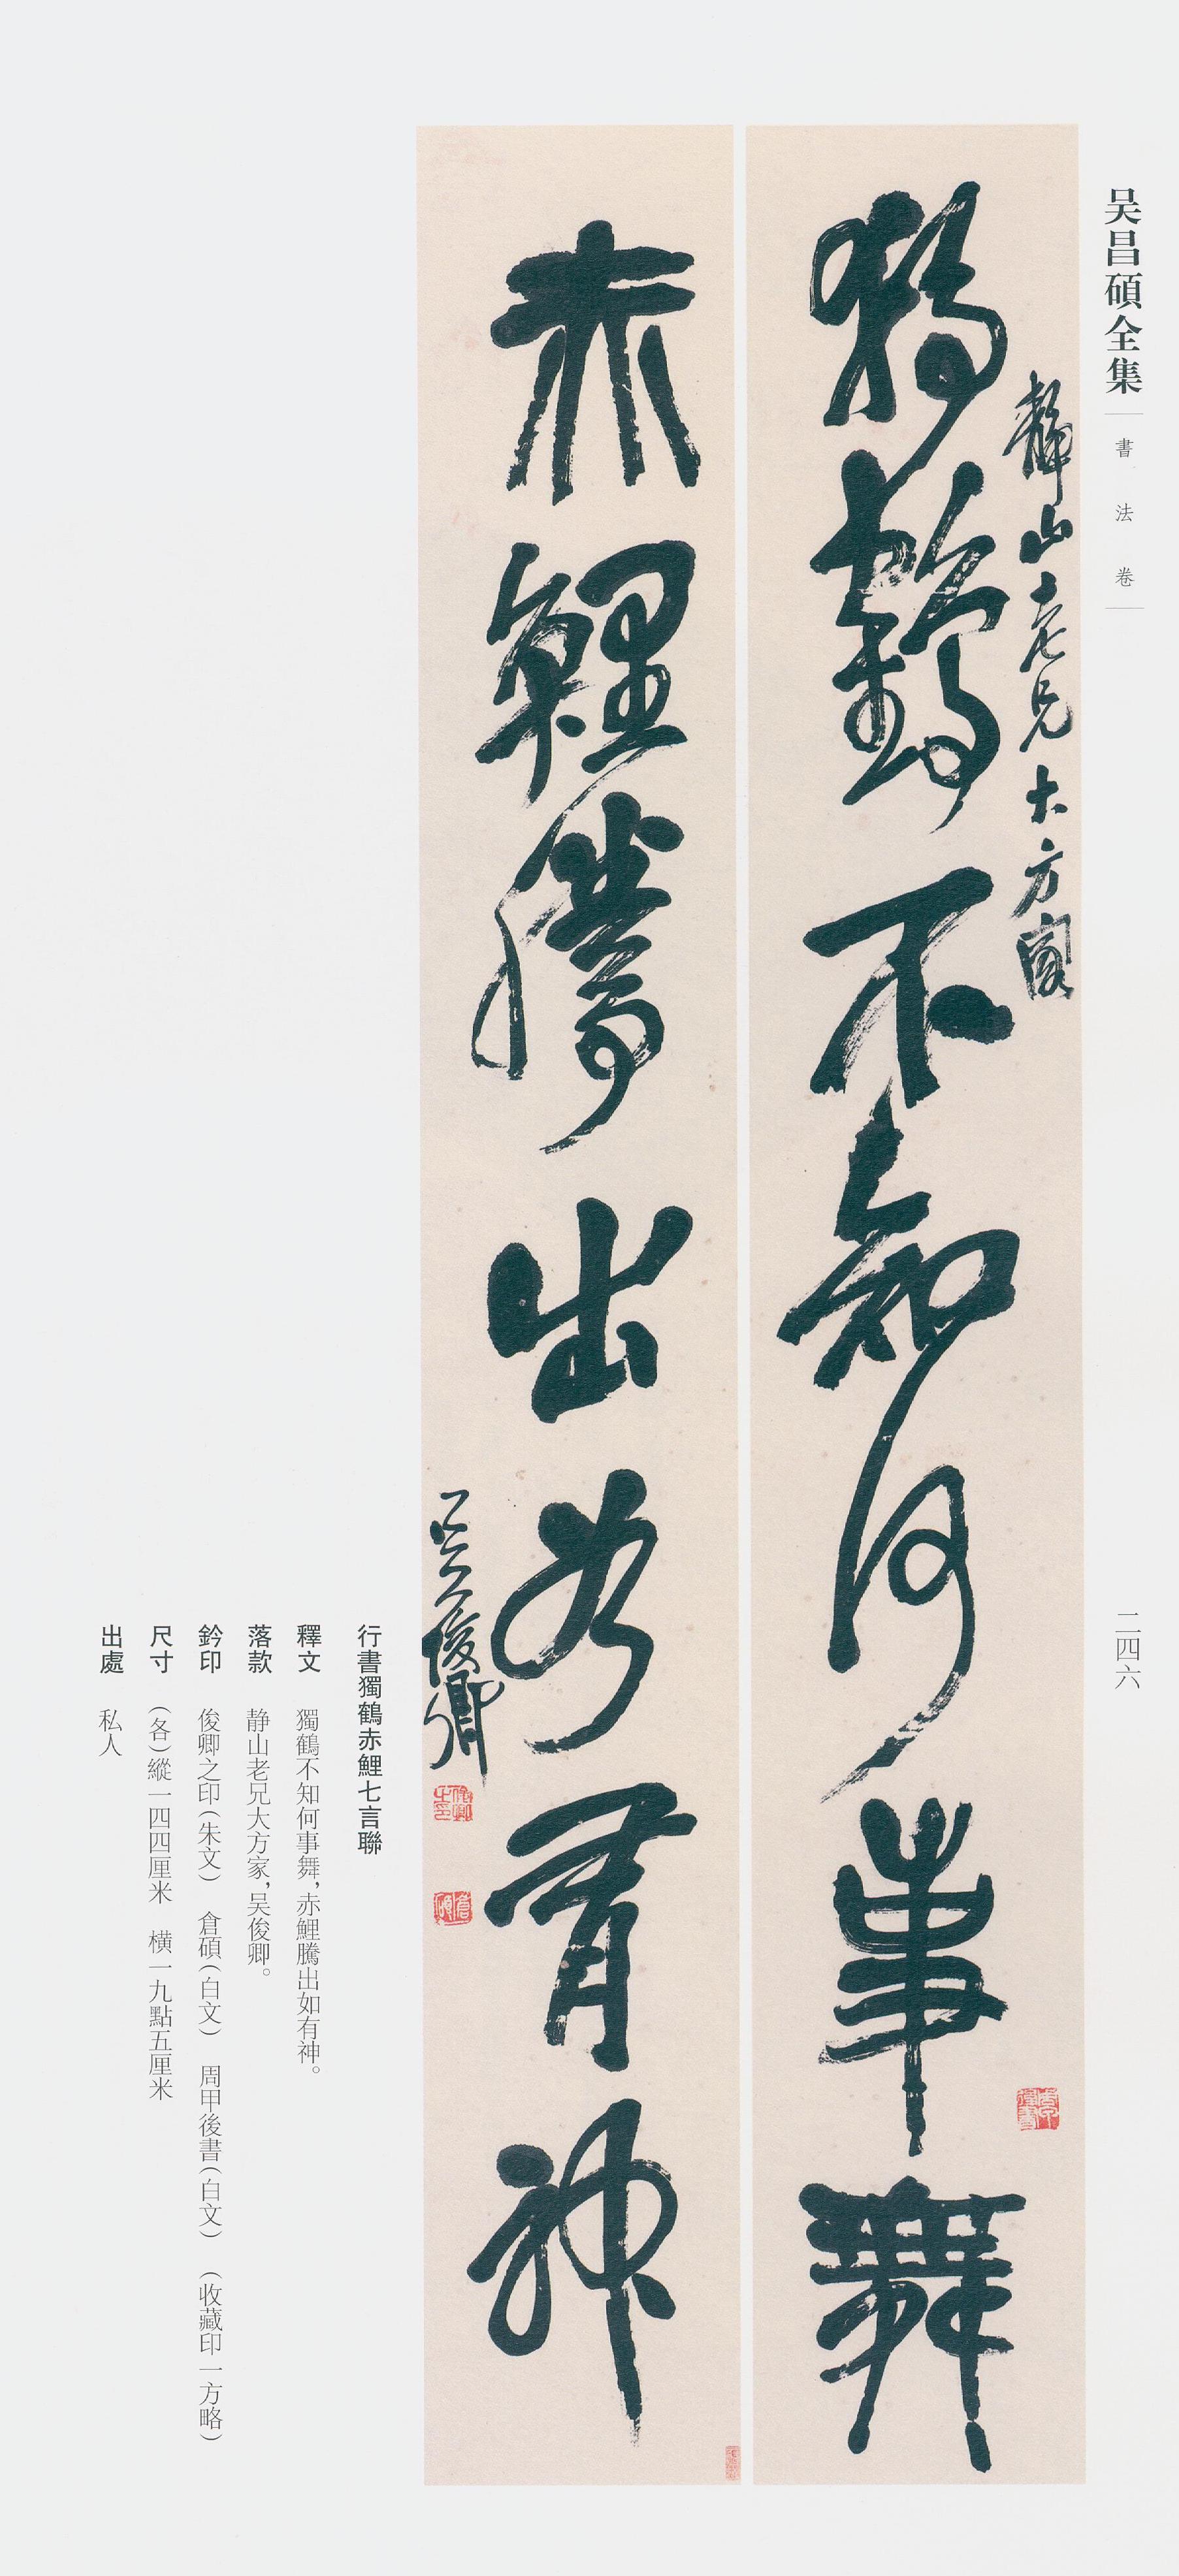 吴昌碩全集
書法卷
二四六
靜山老兄大方家
獨鶴不知何事舞
赤鯉騰出如有神
吴俊卿
行書獨鶴赤鯉七言聯
釋文　獨鶴不知何事舞，赤鯉騰出如有神。
落款　静山老兄大方家，吴俊卿。
鈐印　俊卿之印(朱文)　倉碩(白文)　周甲後書(白文)　(收藏印一方略)
尺寸　(各)縱一四四厘米　橫一九點五厘米
出處　私人